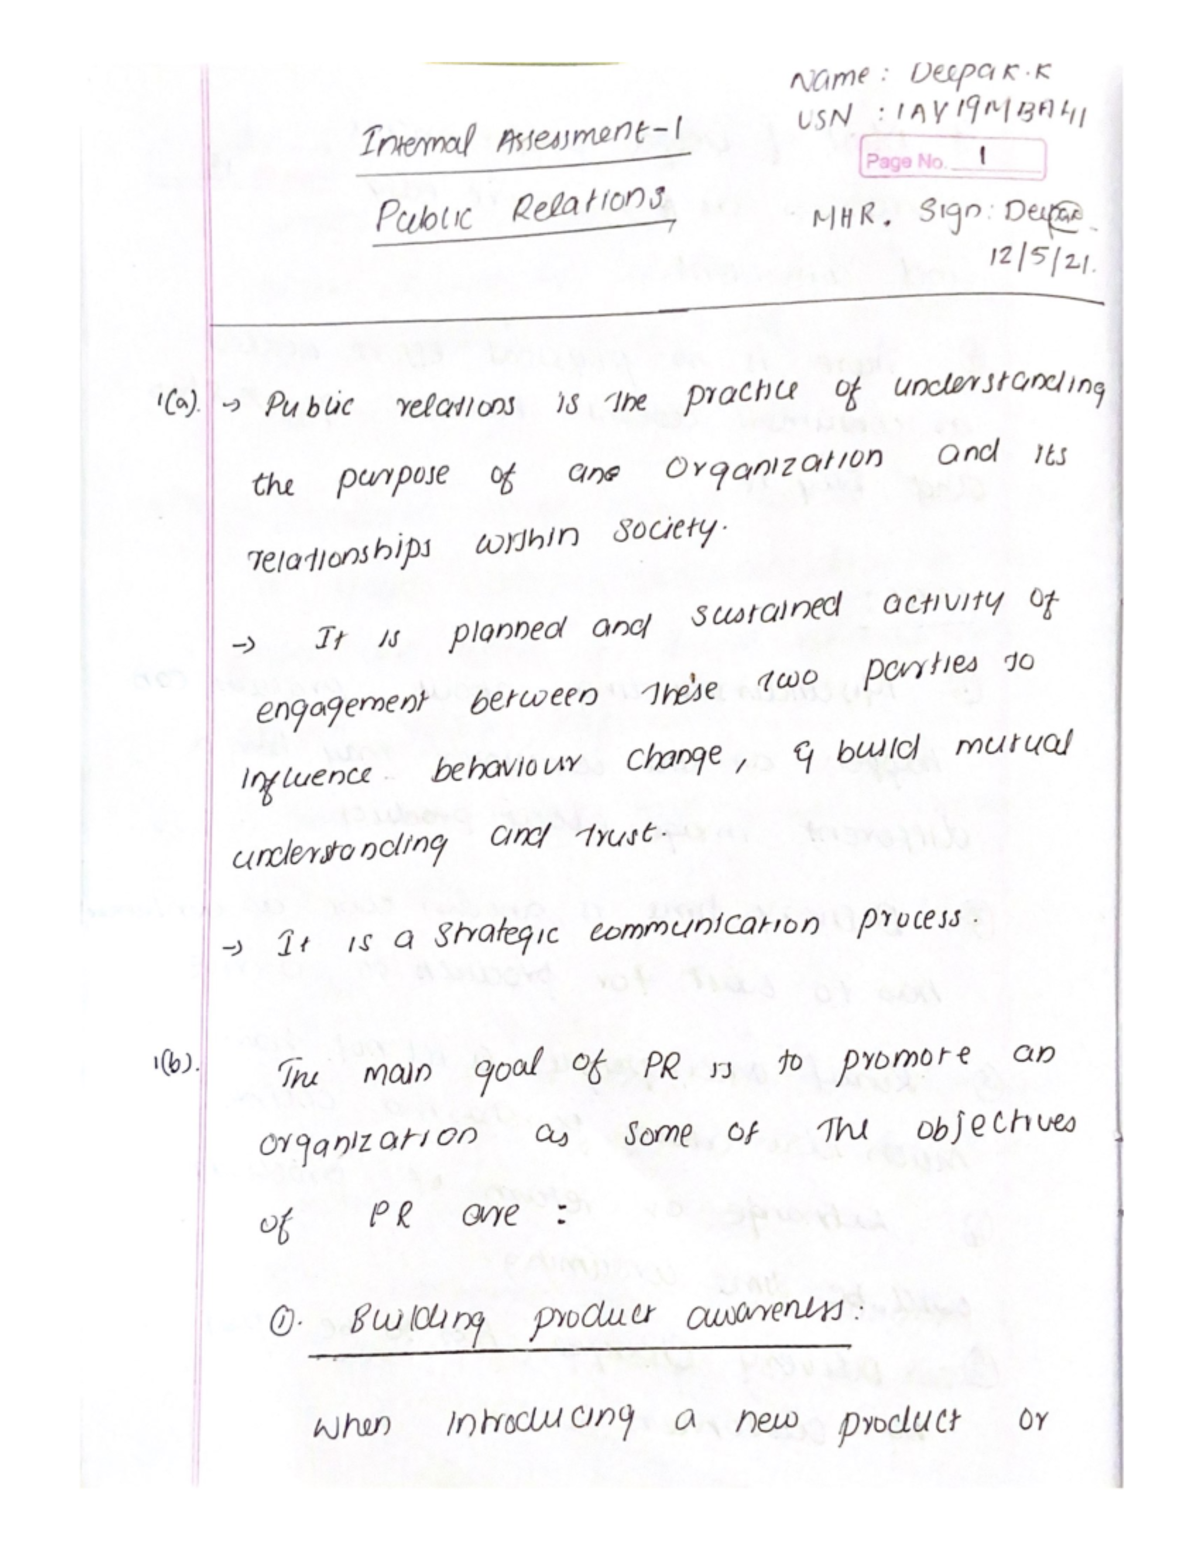 Name : Deepak.K
USN : 1AY19MBA41
Internal Assessment-1
Page No. 1
Public Relations
MHR. Sign: Deepak
12/5/21.
1(a). → Public relations is the practice of understanding
the purpose of an Organization and its
relationships within society.
→ It is planned and sustained activity of
engagement between these two parties to
influence behaviour change, & build mutual
understanding and trust.
→ It is a strategic communication process.
1(b). The main goal of PR is to promote an
organization as some of the objectives
of PR are :
①. Building product awareness:
when introducing a new product or